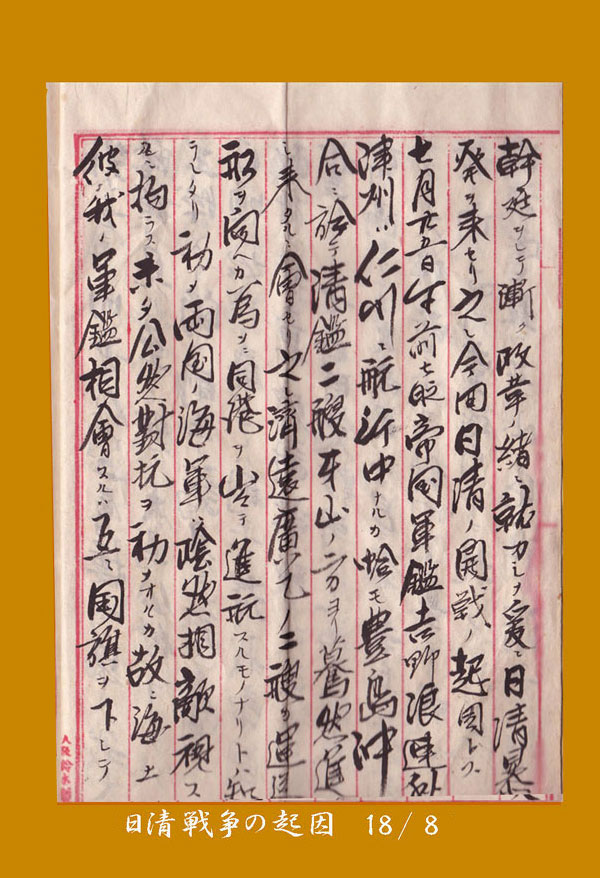 幹廷ヲシテ漸ク改革ノ緒ニ就カシメ爰ニ日清
発ヲ来セリ之レ今回日清ノ開戦ノ起因トス
七月廿五日午前七時帝国軍鑑吉野浪速
津洲ハ仁川ニ航行中ナルカ恰モ豊島沖
合ニ於テ清鑑二艘牙山ノ方ヨリ驀然進
ミ来タルニ會セリ之レ濟遠廣乙ノ二艘カ運送
船ヲ向ヘカ為メニ同港ヲ出テ進航スルモノナリトハ知
ラレタリ初メ両国ノ海軍ハ陰然相敵視ス
ルニ拘ラス未タ公然對抗ヲ初メサルカ故ニ海上
彼我ノ軍鑑相會スルハ互ニ国旗ヲ下シテ
日清戦争の起因 18/8